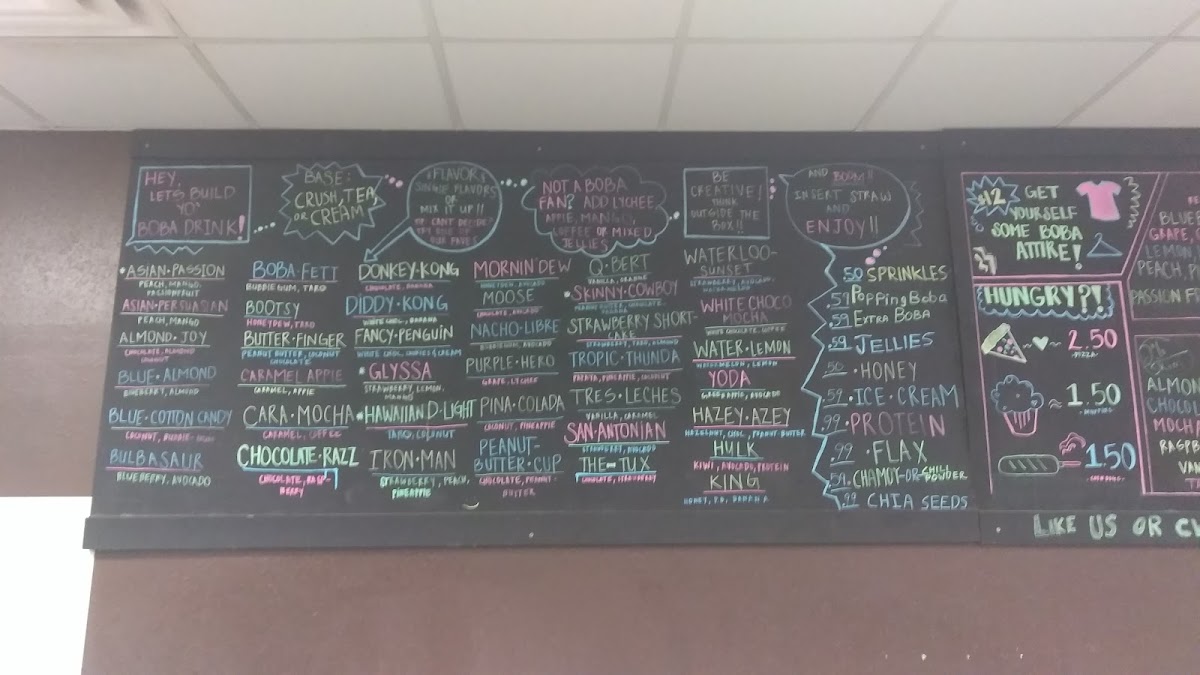 HEY,
LET'S BUILD
YO'
BOBA DRINK!
BASE:
CRUSH, TEA,
OR CREAM
FLAVOR:
SINGLE FLAVORS
OR
MIX IT UP!!
NOT A BOBA
FAN? ADD LYCHEE,
APPLE, MANGO,
COFFEE OR MIXED
JELLIES
BE
CREATIVE!
THINK
OUTSIDE THE
BOX!!
AND BOOM!!
INSERT STRAW
AND
ENJOY!!
ASIAN·PASSION
PEACH, MANGO,
PASSIONFRUIT
ASIAN·PERSUASIAN
PEACH, MANGO
ALMOND·JOY
CHOCOLATE, ALMOND
COCONUT
BLUE·ALMOND
BLUEBERRY, ALMOND
BLUE·COTTON CANDY
BULBASAUR
BLUEBERRY, AVOCADO
BOBA·FETT
BUBBLEGUM, TARO
BOOTSY
HONEYDEW, TARO
BUTTER·FINGER
PEANUT BUTTER, COCONUT
CHOCOLATE
CARAMEL APPLE
CARAMEL, APPLE
CARA·MOCHA
CARAMEL, COFFEE
CHOCOLATE·RAZZ
CHOCOLATE, RASP-
BERRY
DONKEY·KONG
CHOCOLATE, BANANA
DIDDY·KONG
WHITE CHOC, BANANA
FANCY·PENGUIN
WHITE CHOC, COOKIES & CREAM
GLYSSA
STRAWBERRY, LEMON,
MANGO
HAWAIIAN D·LIGHT
TARO, COCONUT
IRON·MAN
STRAWBERRY, PEACH,
PINEAPPLE
MORNIN' DEW
HONEYDEW, AVOCADO
MOOSE
CHOCOLATE, AVOCADO
NACHO·LIBRE
PURPLE·HERO
GRAPE, LYCHEE
PINA·COLADA
COCONUT, PINEAPPLE
PEANUT-
BUTTER·CUP
CHOCOLATE, PEANUT-
BUTTER
Q·BERT
SKINNY·COWBOY
STRAWBERRY SHORT-
CAKE
TROPIC·THUNDA
PAPAYA, PINEAPPLE, COCONUT
TRES·LECHES
VANILLA, CARAMEL
SAN·ANTONIAN
STRAWBERRY, AVOCADO
THE-TUX
WATERLOO-
SUNSET
WHITE CHOCO
MOCHA
WHITE CHOCOLATE, COFFEE
WATER·LEMON
WATERMELON, LEMON
YODA
GREEN APPLE, AVOCADO
HAZEY·AZEY
HAZELNUT, CHOC, PEANUT-BUTTER
HULK
KIWI, AVOCADO, PROTEIN
KING
HONEY, P.B, BANANA
.50 SPRINKLES
.59 Popping Boba
.59 EXTRA BOBA
.59 JELLIES
.50 ·HONEY
.59 ·ICE·CREAM
.99 ·PROTEIN
.99 ·FLAX
.59 ·CHAMOY·OR·CHILI POWDER
.99 CHIA SEEDS
$12 GET
YOURSELF
SOME BOBA
ATTIRE!
HUNGRY?!
2.50
PIZZA
1.50
1.50
LIKE US OR
GRAPE,
LEMON
PEACH, P
PASSION F
ALMON
CHOCOL
MOCHA
RASPB
VAN